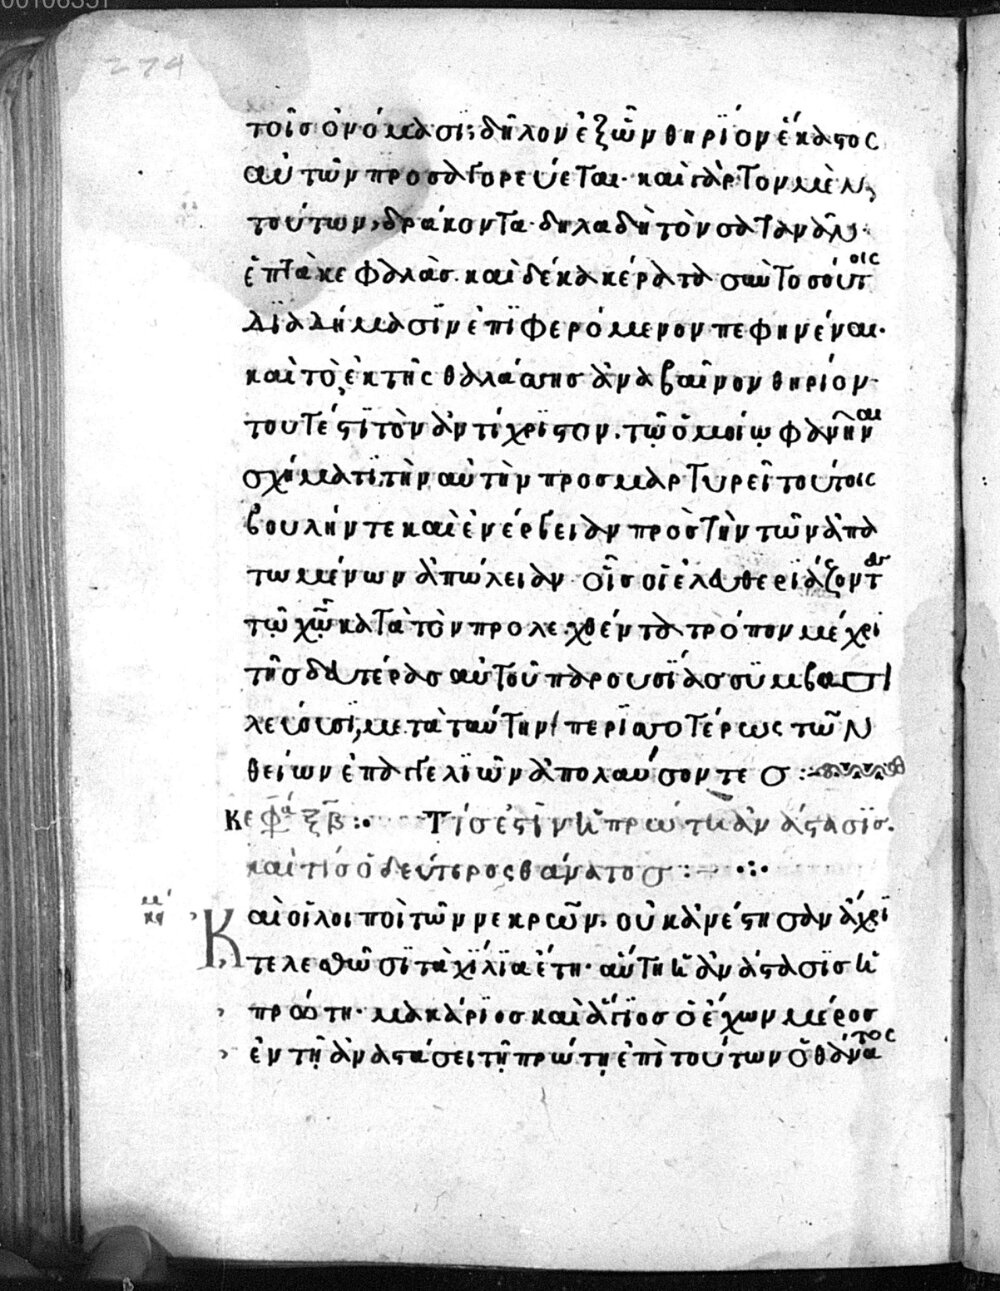 274
τοῖσ ὀνόμασι; δῆλον ἐξ ὧν θηρίον ἕκαστος
αὐτῶν προσαγορεύεται· καὶ γὰρ τὸν μὲν,
τούτων, δράκοντα· δηλαδὴ τὸν σατανᾶν·
ἑπτὰ κεφαλὰσ. καὶ δέκα κέρατα σὺν τοσούτοις
διαδήμασϊν ἐπϊφερόμενον πεφηνέναι·
καὶ τὸ ἐκ τῆς θαλάσσησ ἀναβαῖνον θηρίον·
τουτέστϊ τὸν ἀντίχρϊστον. τῷ ὁμοίῳ φανῆναι
σχήματϊ τὴν αὐτὴν προσμαρτυρεῖ τούτοις
βουλήν τε καὶ ἐνέργειαν πρὸσ τὴν τῶν ἀπα
τωμένων ἀπώλειαν· οἷσ οἱ ἐλευθεριάζοντες
τῷ χῷ κατὰ τὸν προλεχθέντα τρόπον μέχρι
τῆσ δευτέρασ αὐτοῦ παρουσΐασ συμβασι
λεύουσϊ, μετὰ ταύτην περϊσσοτέρως τῶν
θείων ἐπαγγελϊῶν ἀπολαύσοντεσ :
κεφα ξβ :· Τίσ ἐστϊν ἡ πρώτη ἀνάστασϊσ.
καὶ τίσ ὁ δεύτερος θάνατοσ :
κη
Καὶ οἱ λοιποὶ τῶν νεκρῶν. οὐκ ἀνέστησαν ἄχρϊ
τελεσθῶσϊ τὰ χΐλϊα ἔτη· αὕτη ἡ ἀνάστασϊσ ἡ
πρώτη· μακάρϊοσ καὶ ἅγϊοσ ὁ ἔχων μέροσ
ἐν τῇ ἀναστάσει τῇ πρώτῃ ἐπὶ τούτων ὁ θάνατος